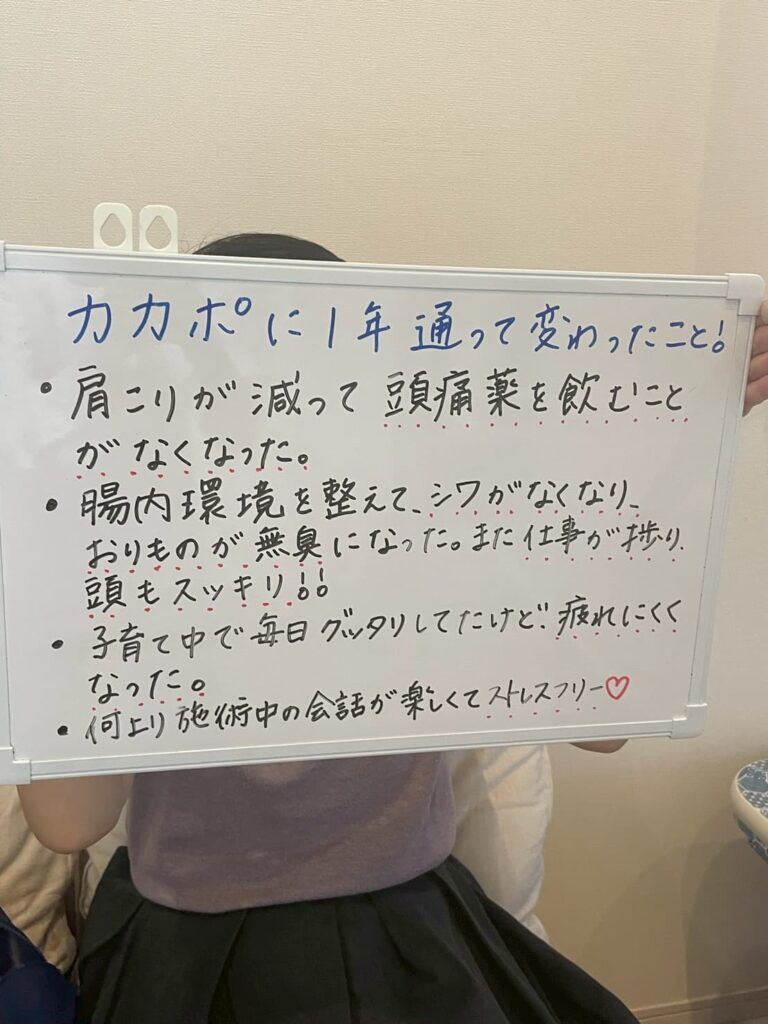 カカポに1年通って変わったこと!
・肩こりが減って頭痛薬を飲むこと
がなくなった。
・腸内環境を整えて、シワがなくなり、
おりものが無臭になった。また仕事が捗り、
頭もスッキリ!!
・子育て中で毎日グッタリしてたけど、疲れにくく
なった。
・何より施術中の会話が楽しくてストレスフリー♡